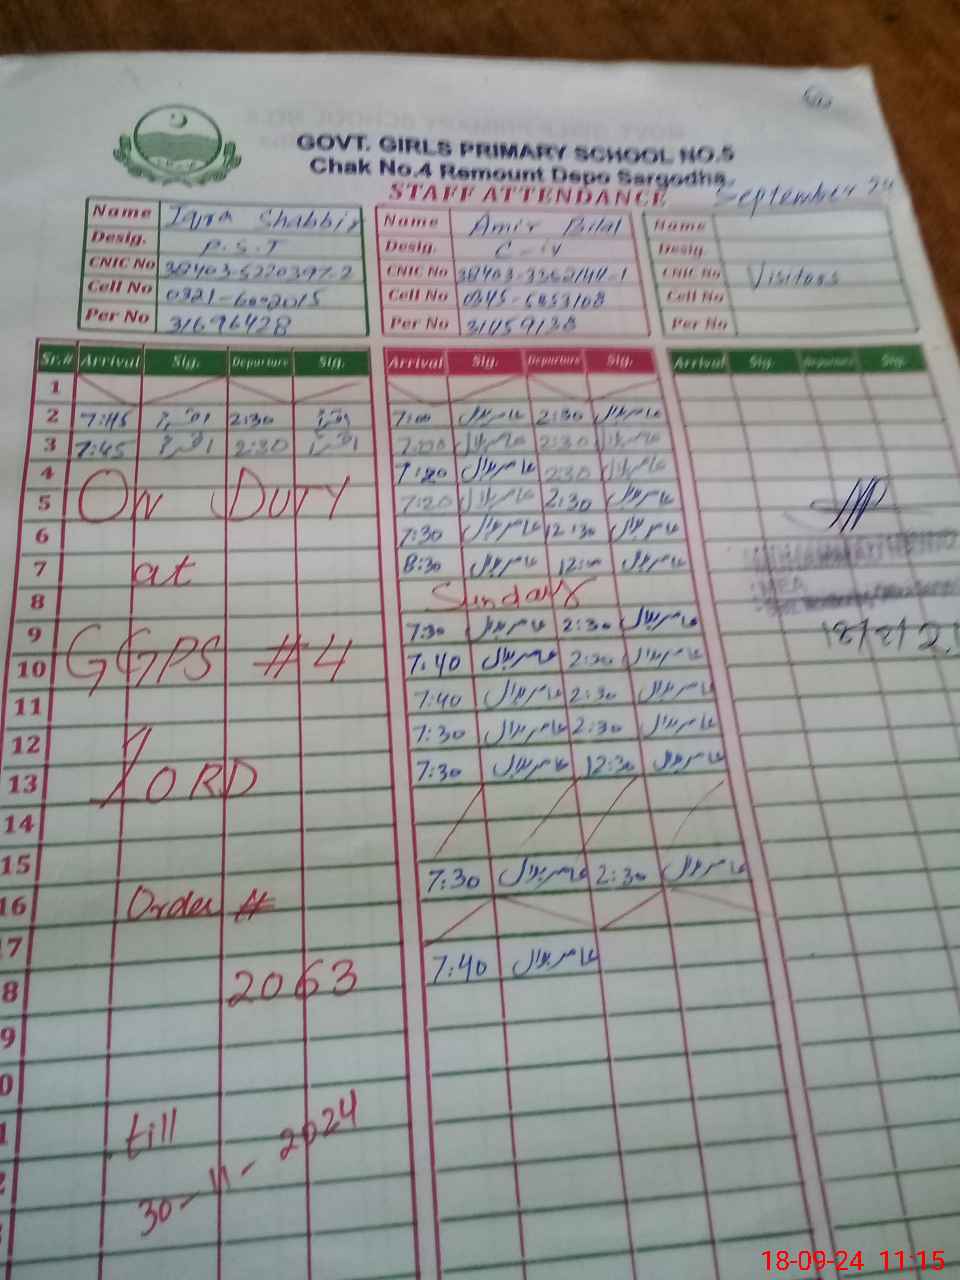 GOVT. GIRLS PRIMARY SCHOOL NO.5
Chak No.4 Remount Depo Sargodha.
STAFF ATTENDANCE September 24
Name Iqra Shabbir
Desig. P.S.T
CNIC No
Cell No
Per No 31696428
Name Amir Bilal
Desig. C-iv
CNIC No
Cell No
Per No 31459138
Name
Desig.
CNIC No Visitors
Cell No
Per No
Sr.# Arrival Sig. Departure Sig. Arrival Sig. Departure Sig. Arrival Sig. Departure Sig.
1
2 7:45 اقرا 2:30 اقرا 7:00 عامر بلال 2:30 عامر بلال
3 7:45 اقرا 2:30 اقرا عامر بلال 2:30 عامر بلال
4 7:20 عامر بلال 2:30 عامر بلال
5 On Duty 7:20 عامر بلال 2:30 عامر بلال
6 7:30 عامر بلال 12:30 عامر بلال
7 at 8:30 عامر بلال 12:00 عامر بلال
8 Sunday
9 7:30 عامر بلال 2:30 عامر بلال
10 GGPS #4 7:40 عامر بلال 2:30 عامر بلال
11 7:40 عامر بلال 2:30 عامر بلال
12 7:30 عامر بلال 2:30 عامر بلال
13 ORD 7:30 عامر بلال 12:30 عامر بلال
14
15 7:30 عامر بلال 2:30 عامر بلال
16 Order #
7
8 2063 7:40 عامر بلال
9
0
1 till
30-11-2024
18-09-24 11:15